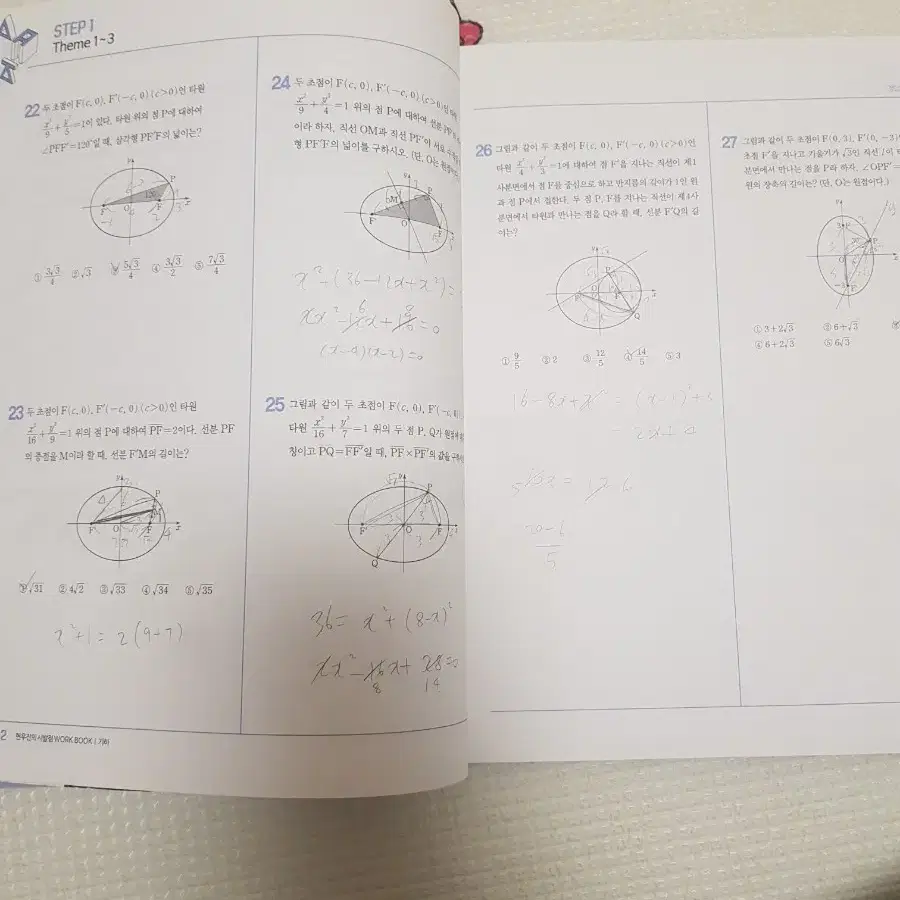 STEP 1
Theme 1~3
22 두 초점이 F(c, 0), F'(-c, 0) (c>0)인 타원
x²/9 + y²/5 =1이 있다. 타원 위의 점 P에 대하여
∠PFF'=120°일 때, 삼각형 PF'F의 넓이는?
① 3√3/4 ② √3 ③ 5√3/4 ④ 3√3/2 ⑤ 7√3/4
23 두 초점이 F(c, 0), F'(-c, 0) (c>0)인 타원
x²/16 + y²/9 =1 위의 점 P에 대하여 PF=2이다. 선분 PF
의 중점을 M이라 할 때, 선분 F'M의 길이는?
① √31 ② 4√2 ③ √33 ④ √34 ⑤ √35
x²+1 = 2(9+7)
24 두 초점이 F(c, 0), F'(-c, 0) (c>0)인
x²/9 + y²/4 =1 위의 점 P에 대하여 선분
이라 하자. 직선 OM과 직선 PF'이 서로
형 PF'F의 넓이를 구하시오. (단, O는 원점
(x-4)(x-2)=0
25 그림과 같이 두 초점이 F(c, 0), F'(-c, 0)
타원 x²/16 + y²/7 =1 위의 두 점 P, Q가 원점
칭이고 PQ=FF'일 때, PF×PF'의 값을
36= x²+(8-x)²
2 현우진의 시발점 WORK BOOK | 기하
26 그림과 같이 두 초점이 F(c, 0), F'(-c, 0) (c>0)인
타원 x²/4 + y²/3 =1에 대하여 점 F'을 지나는 직선이 제1
사분면에서 점 F를 중심으로 하고 반지름의 길이가 1인 원
과 점 P에서 접한다. 두 점 P, F를 지나는 직선이 제4사
분면에서 타원과 만나는 점을 Q라 할 때, 선분 F'Q의 길
이는?
① 9/5 ② 2 ③ 12/5 ④ 14/5 ⑤ 3
20-6
5
27 그림과 같이 두 초점이 F(0, 3), F'(0, -3)
초점 F'을 지나고 기울기가 √3인 직선 l이
분면에서 만나는 점을 P라 하자. ∠OPF'=
원의 장축의 길이는? (단, O는 원점이다.)
① 3+2√3 ② 6+√3
④ 6+2√3 ⑤ 6√3